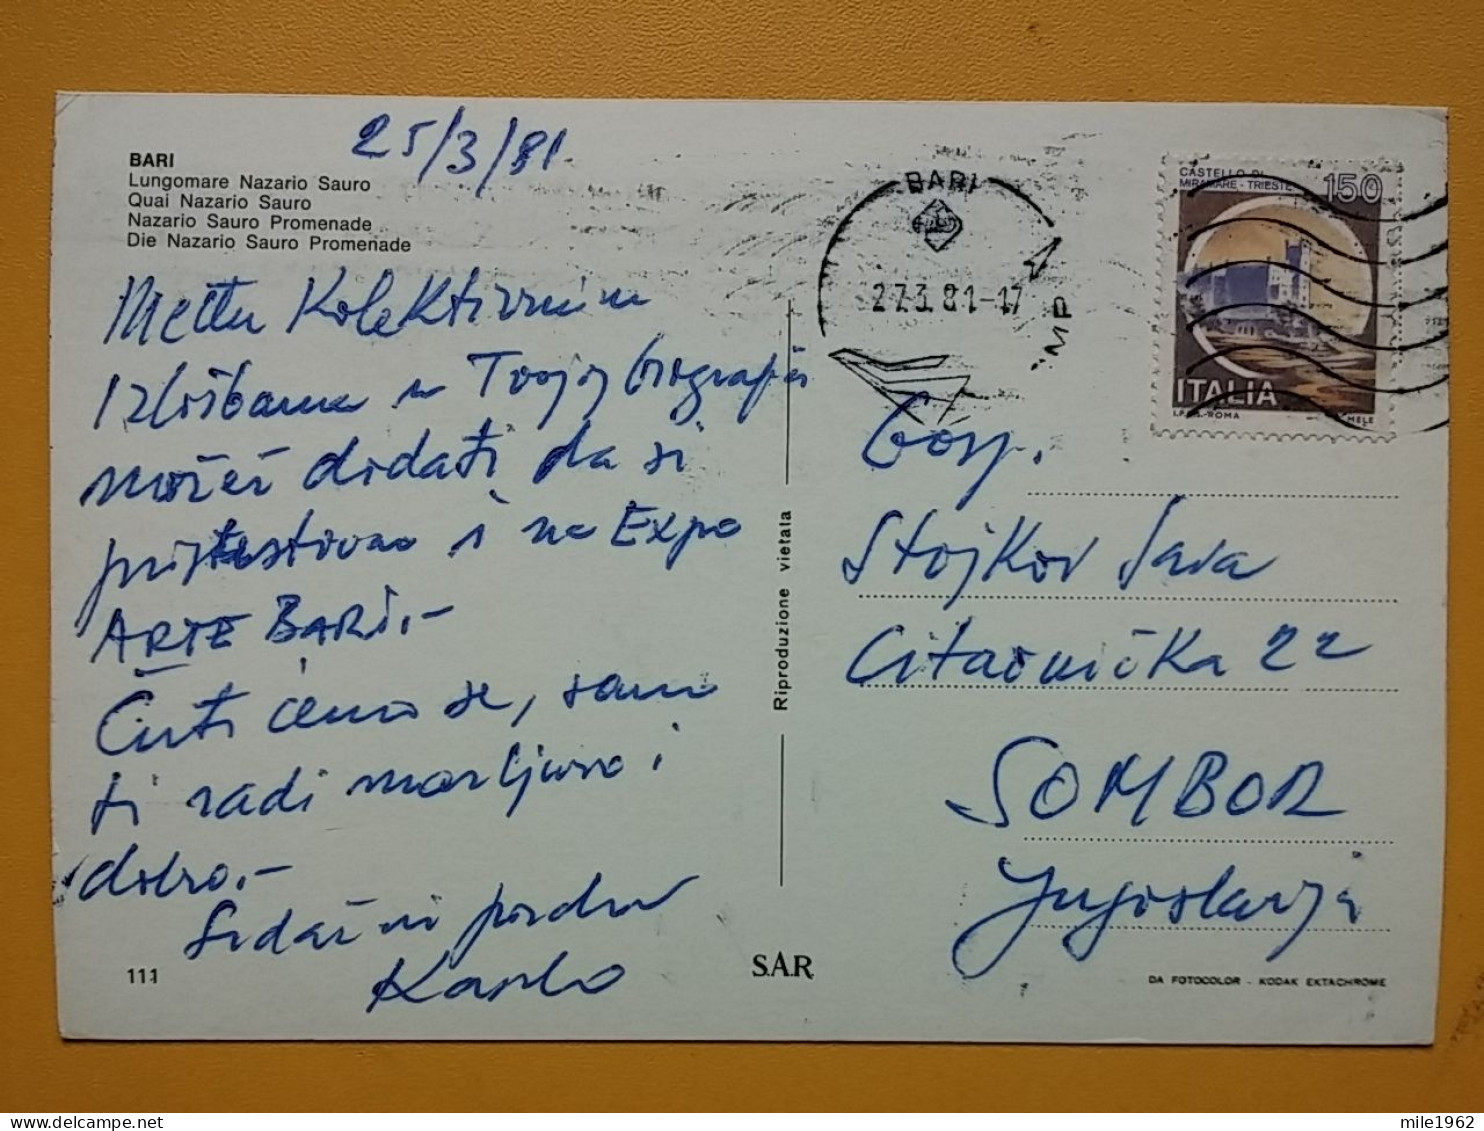 25/3/81
BARI
Lungomare Nazario Sauro
Quai Nazario Sauro
Nazario Sauro Promenade
Die Nazario Sauro Promenade
Među Kolektivnim
Izložbama u Tvojoj biografiji
možeš dodati da si
prisustvovao i na Expo
ARTE BARI.-
Čuti ćemo se, samo
ti radi marljivo i
dobro.-
Srdačni pozdrav
Karlo
111
SAR
Riproduzione vietata
BARI
27.3.81-17
MP
CASTELLO DI
MIRAMARE - TRIESTE
150
ITALIA
I.P.Z.S. - ROMA
Gosp.
Stojkov Sava
Citaonička 22
SOMBOR
Jugoslavija
DA FOTOCOLOR - KODAK EKTACHROME
mile1962